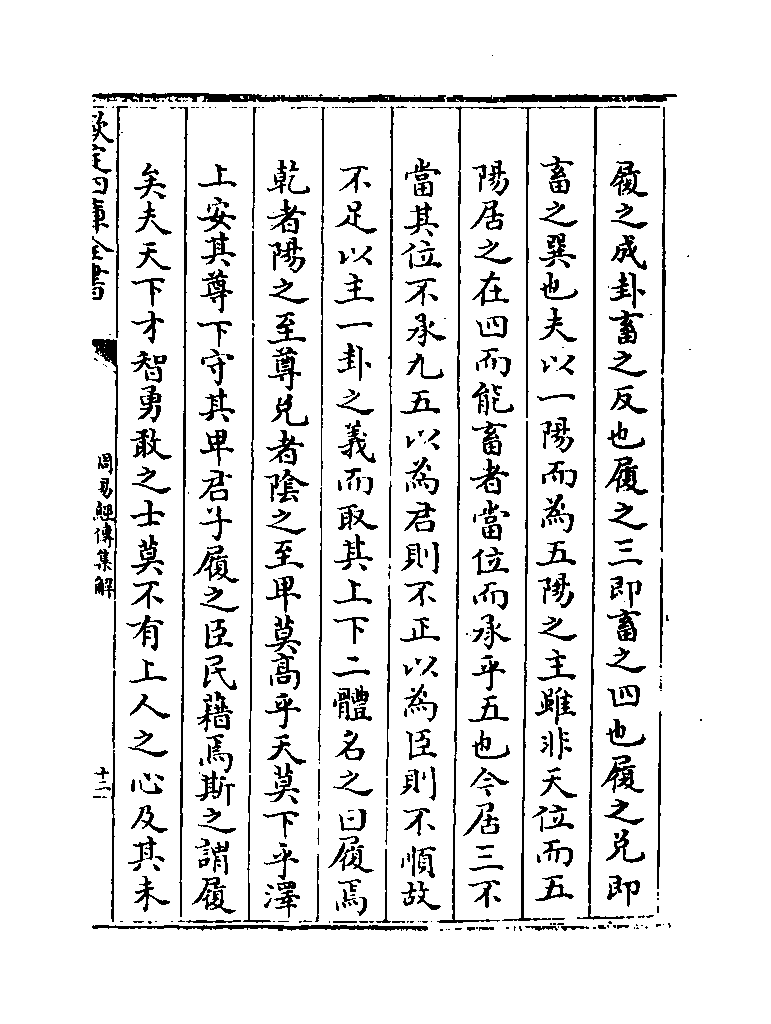 履之成卦畜之反也履之三即畜之四也履之兑即
畜之巽也夫以一陽而為五陽之主雖非天位而五
陽居之在四而能畜者當位而承乎五也今居三不
當其位不承九五以為君則不正以為臣則不順故
不足以主一卦之義而取其上下二體名之曰履焉
乾者陽之至尊兑者陰之至卑莫高乎天莫下乎澤
上安其尊下守其卑君子履之臣民藉焉斯之謂履
矣夫天下才智勇敢之士莫不有上人之心及其未
欽定四庫全書
周易經傳集解
十二